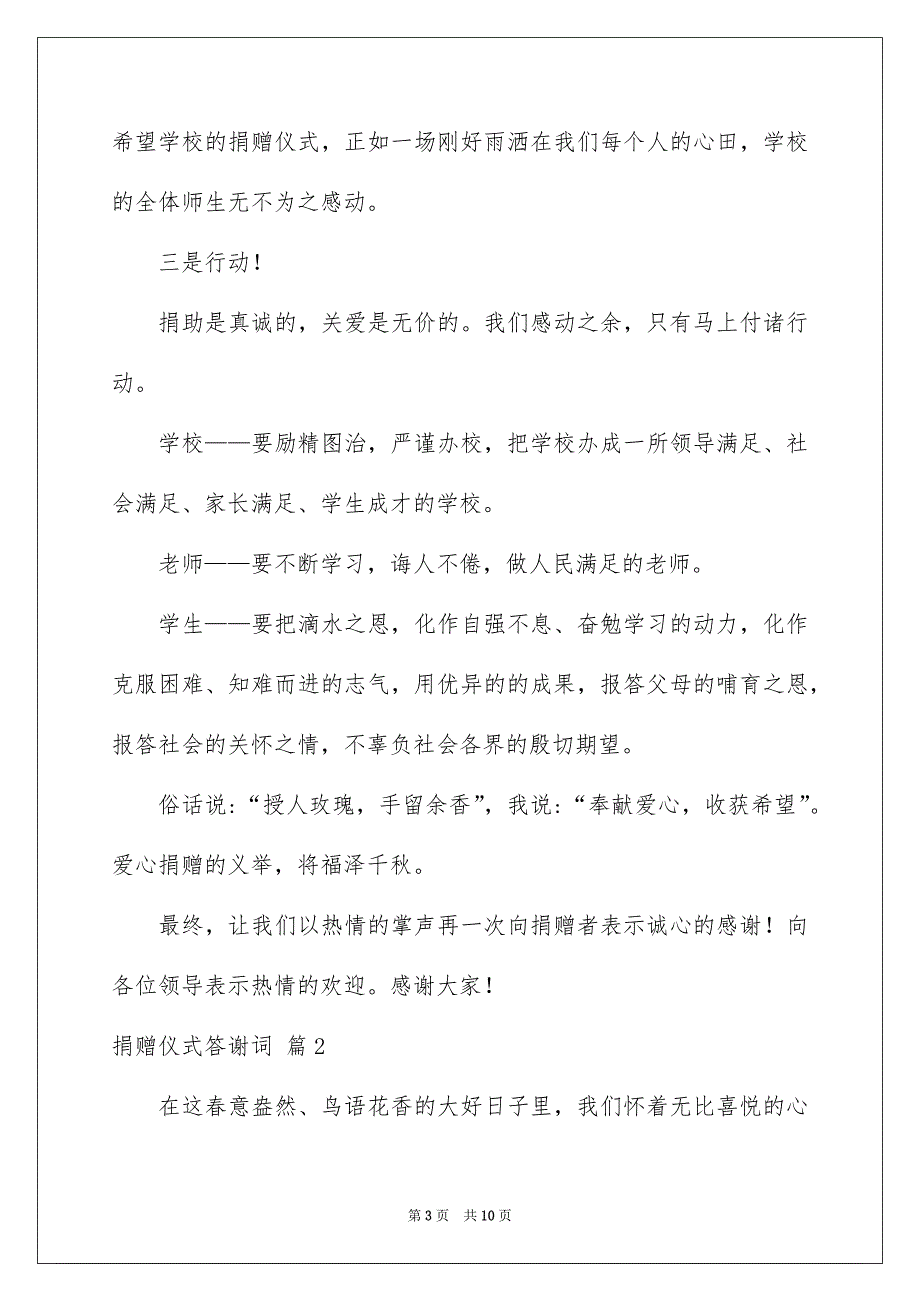 希望学校的捐赠仪式，正如一场刚好雨洒在我们每个人的心田，学校
的全体师生无不为之感动。
三是行动！
捐助是真诚的，关爱是无价的。我们感动之余，只有马上付诸行
动。
学校——要励精图治，严谨办校，把学校办成一所领导满足、社
会满足、家长满足、学生成才的学校。
老师——要不断学习，诲人不倦，做人民满足的老师。
学生——要把滴水之恩，化作自强不息、奋勉学习的动力，化作
克服困难、知难而进的志气，用优异的的成果，报答父母的哺育之恩，
报答社会的关怀之情，不辜负社会各界的殷切期望。
俗话说：“授人玫瑰，手留余香”，我说：“奉献爱心，收获希望”。
爱心捐赠的义举，将福泽千秋。
最终，让我们以热情的掌声再一次向捐赠者表示诚心的感谢！向
各位领导表示热情的欢迎。感谢大家！
捐赠仪式答谢词 篇2
在这春意盎然、鸟语花香的大好日子里，我们怀着无比喜悦的心
第 3 页 共 10 页